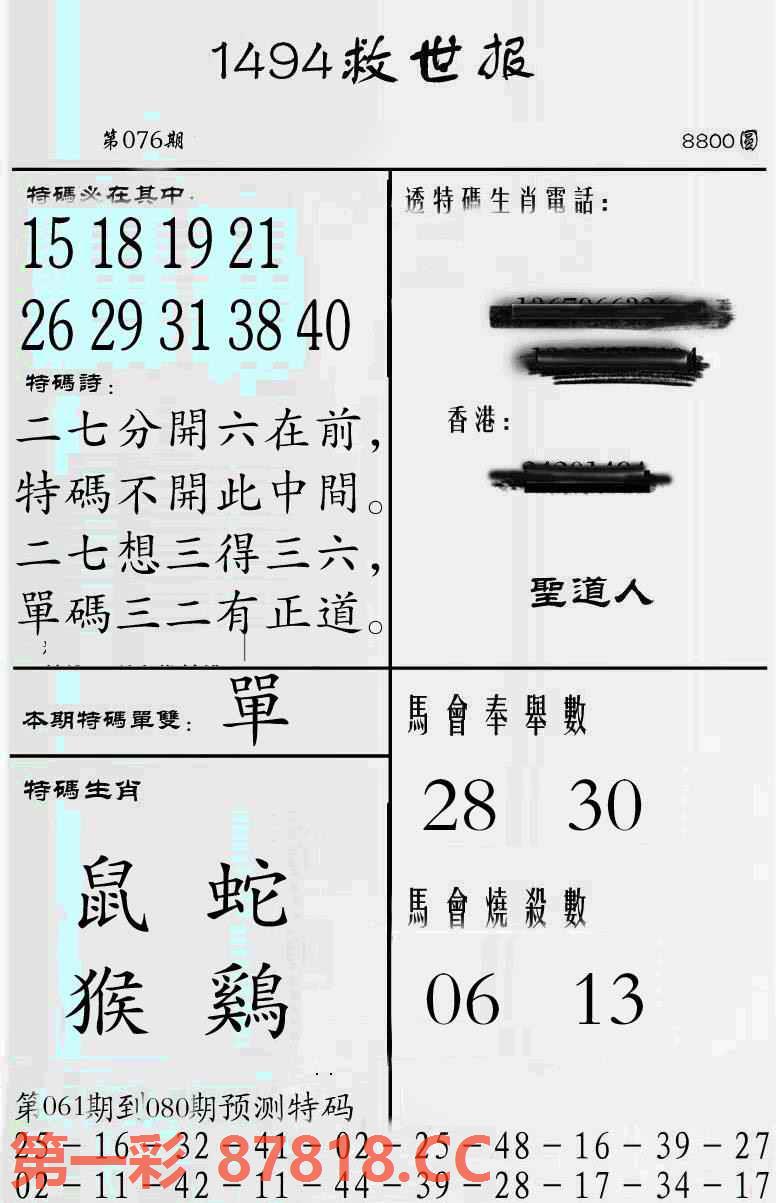 1494救世报
第076期
8800圓
特碼必在其中:
15 18 19 21
26 29 31 38 40
特碼詩:
二七分開六在前,
特碼不開此中間。
二七想三得三六,
單碼三二有正道。
透特碼生肖電話:
香港:
聖道人
本期特碼單雙: 單
特碼生肖
鼠 蛇
猴 鷄
馬會奉舉數
28 30
馬會燒殺數
06 13
第061期到080期预测特码
25-16-32-41-02-25-48-16-39-27
02-11-42-11-44-39-28-17-34-17
第一彩 87818.CC